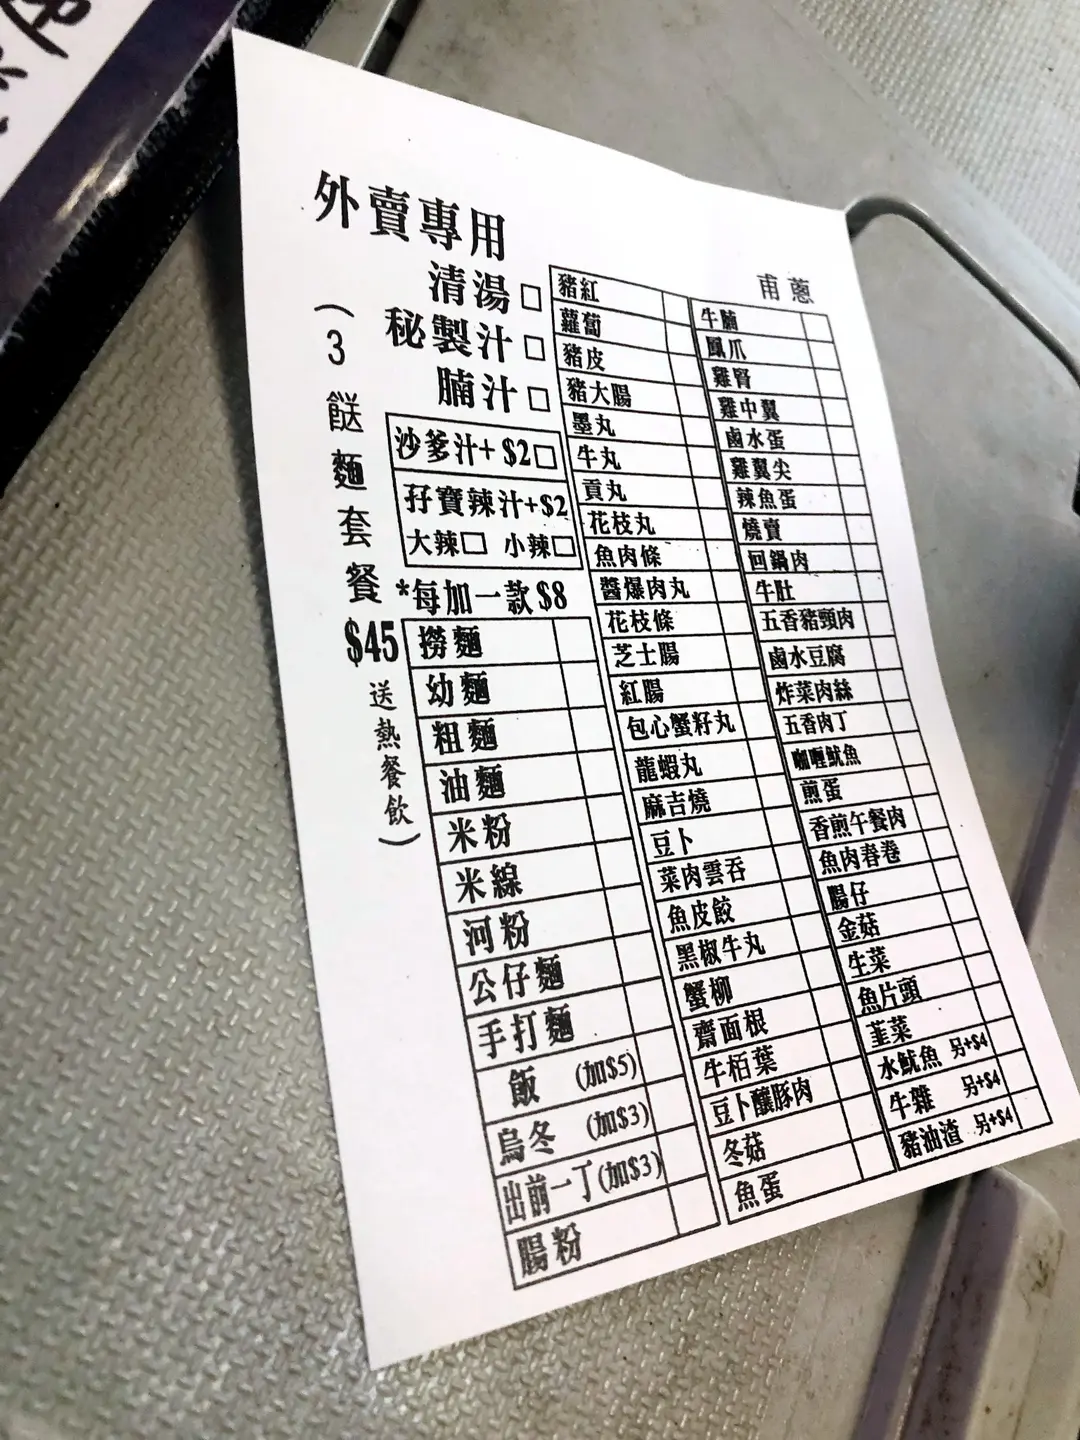 外賣專用
清湯□
秘製汁□
腩汁□
沙爹汁+ $2□
孖寶辣汁+$2
大辣□ 小辣□
*每加一款 $8
（3餸麵套餐
$45
送熱餐飲）
撈麵
幼麵
粗麵
油麵
米粉
米線
河粉
公仔麵
手打麵
飯 (加$5)
烏冬 (加$3)
出前一丁(加$3)
腸粉
豬紅
蘿蔔
豬皮
豬大腸
墨丸
牛丸
貢丸
花枝丸
魚肉條
醬爆肉丸
花枝條
芝士腸
紅腸
包心蟹籽丸
龍蝦丸
麻吉燒
豆卜
菜肉雲吞
魚皮餃
黑椒牛丸
蟹柳
齋面根
牛栢葉
豆卜釀豚肉
冬菇
魚蛋
甫蔥
牛腩
鳳爪
雞腎
雞中翼
鹵水蛋
雞翼尖
辣魚蛋
燒賣
回鍋肉
牛肚
五香豬頸肉
鹵水豆腐
炸菜肉絲
五香肉丁
咖喱魷魚
煎蛋
香煎午餐肉
魚肉春卷
腸仔
金菇
生菜
魚片頭
韮菜
水魷魚 另+$4
牛雜 另+$4
豬油渣 另+$4